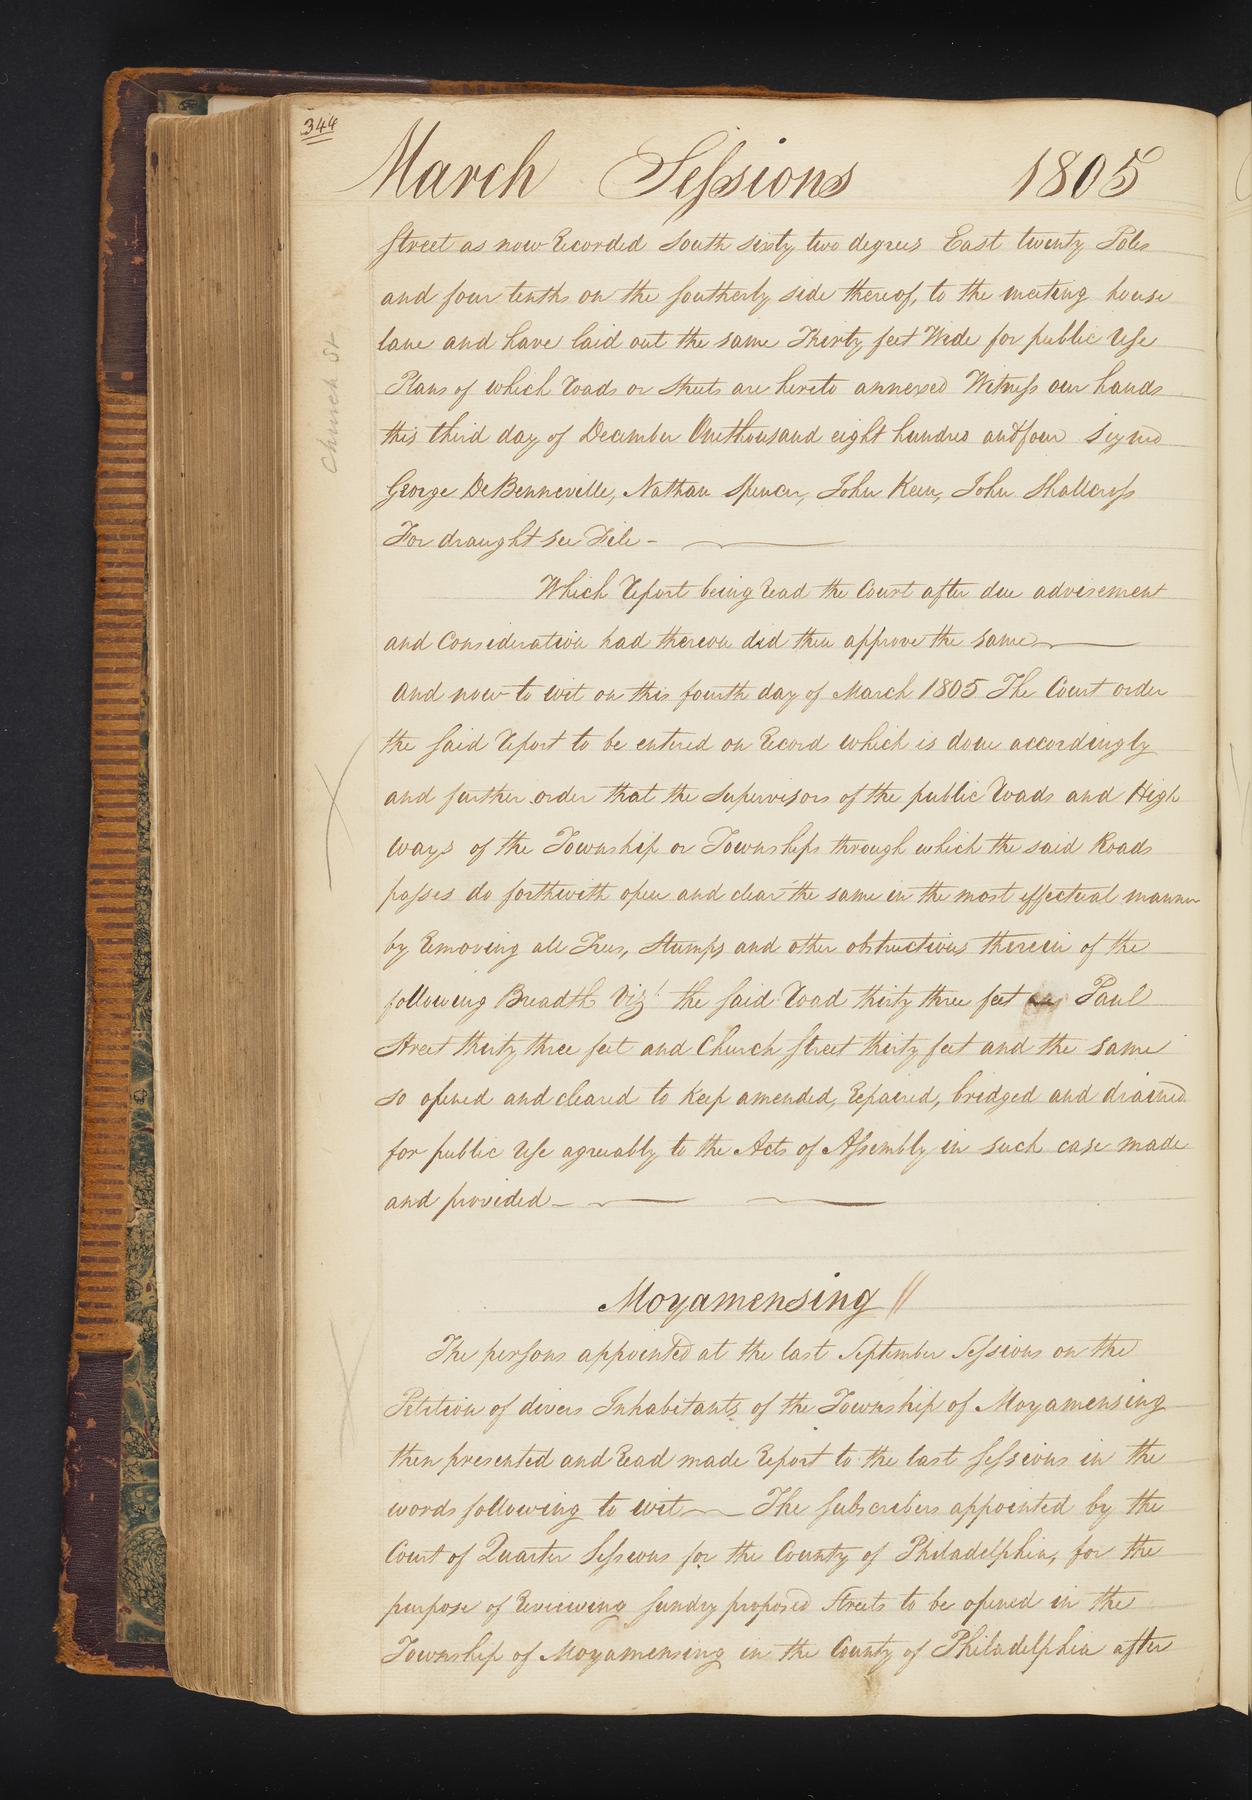 344
March Sessions 1805
Street as now Recorded South sixty two degrees East twenty Poles
and four tenths on the southerly side thereof, to the meeting house
lane and have laid out the same Thirty feet Wide for public Use
Plans of which Roads or Streets are hereto annexed Witness our hands
this third day of December One thousand eight hundred and four Signed
George DeBenneville, Nathan Spencer, John Keen, John Shallcross
For draught see File -
Which Report being Read the Court after due advisement
and Consideration had thereon did then approve the same
And now to wit on this fourth day of March 1805 The Court order
the said Report to be entered on Record which is done accordingly
and further order that the Supervisors of the public Roads and High
ways of the Township or Townships through which the said Roads
passes do forthwith open and clear the same in the most effectual manner
by Removing all Trees, Stumps and other obstructions therein of the
following Breadth Vizt the said Road thirty three feet Paul
Street thirty three feet and Church Street thirty feet and the same
so opened and cleared to Keep amended, Repaired, bridged and drained
for public Use agreeably to the Acts of Assembly in such case made
and provided -
Church St
Moyamensing //
The persons appointed at the last September Sessions on the
Petition of divers Inhabitants of the Township of Moyamensing
then presented and Read made Report to the last Sessions in the
words following to wit The Subscribers appointed by the
Court of Quarter Sessions for the County of Philadelphia, for the
purpose of Reviewing sundry proposed Streets to be opened in the
Township of Moyamensing in the County of Philadelphia after